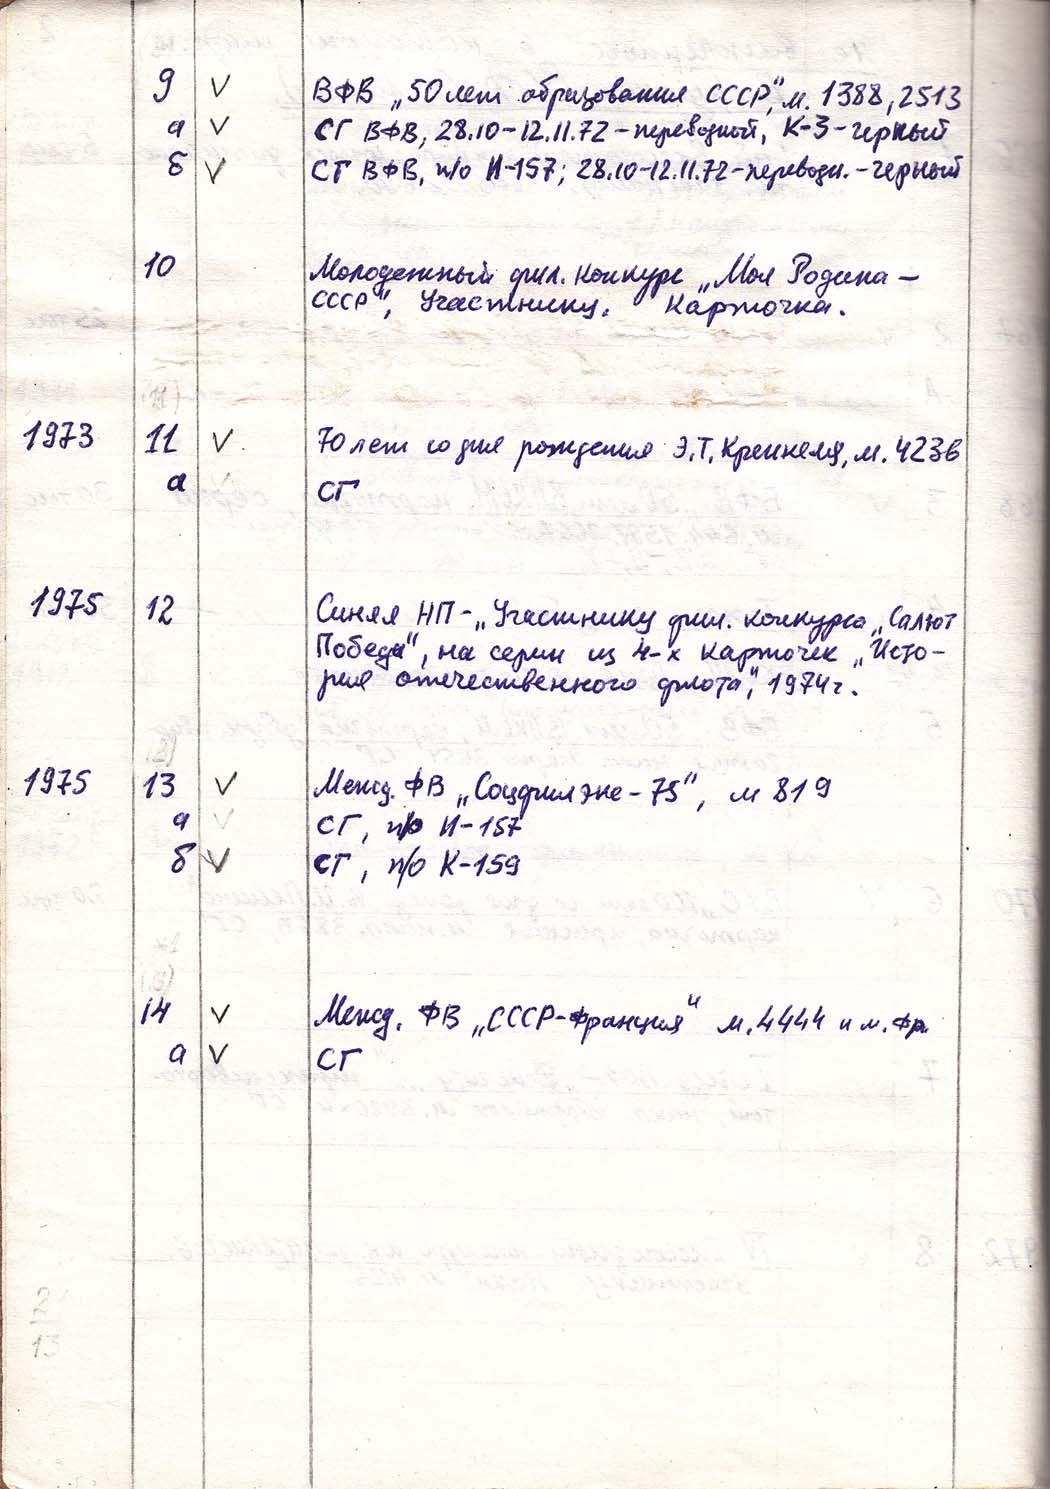 9 V ВФВ „50 лет образования СССР", м. 1388, 2513
а V СГ ВФВ, 28.10-12.11.72-переводный, К-3-черный
б V СГ ВФВ, п/о И-157; 28.10-12.11.72-переводн.-черный
10 Молодежный фил. конкурс „Моя Родина –
СССР", Участнику. Карточка.
11)
1973 11 V 70 лет со дня рождения Э.Т. Кренкеля, м. 4236
а V СГ
1975 12 Синяя НП-„Участнику фил. конкурса „Салют
Победа", на серии из 4-х карточек „Исто-
рия отечественного флота", 1974 г.
1975 13 V Межд. ФВ „Соцфилэкс-75", м 819
а V СГ, п/о И-157
б V СГ, п/о К-159
14 V Межд. ФВ „СССР-Франция" м. 4444 и м. Фр.
а V СГ
12
13